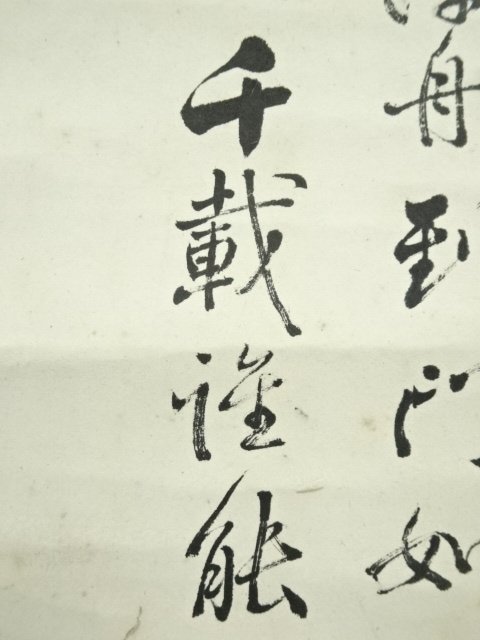 舟到門如
千載誰能